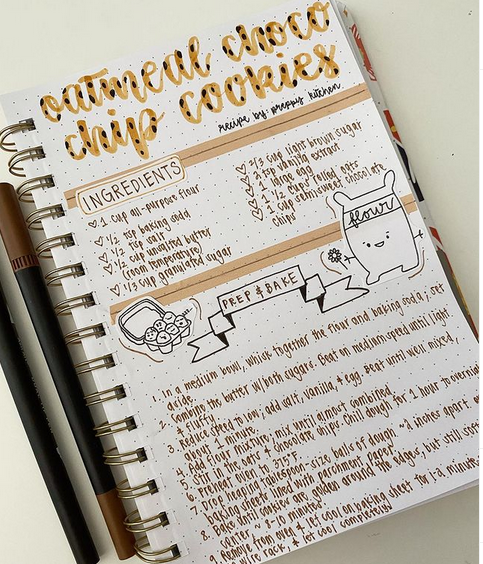 oatmeal choco
chip cookies
recipe by: preppy kitchen
INGREDIENTS
♡ 1 cup all-purpose flour
♡ 1/2 tsp baking soda
♡ 1/2 tsp salt
♡ 1/2 cup unsalted butter
(room temperature)
♡ 1/3 cup granulated sugar
♡ 2/3 cup light brown sugar
♡ 2 tsp vanilla extract
♡ 1 large egg
♡ 1 1/2 cups rolled oats
♡ 1 cup semisweet chocolate
chips
flour
PREP & BAKE
1. In a medium bowl, whisk together the flour and baking soda, set
aside
2. Combine the butter w/ both sugars. Beat on medium speed until light
& fluffy.
3. Reduce speed to low, add salt, vanilla, & egg. Beat until well mixed,
about 1 minute.
4. Add flour mixture, mix until almost combined
5. Stir in the oats & chocolate chips. Chill dough for 1 hour to overnight
6. Preheat oven to 375°F
7. Drop heaping tablespoon-size balls of dough ~2 inches apart on
baking sheets lined with parchment paper.
8. Bake until cookies are golden around the edges, but still soft in
center ~ 8-10 minutes
9. Remove from oven & let cool on baking sheet for 1-2 minutes
wire rack, & let cool completely